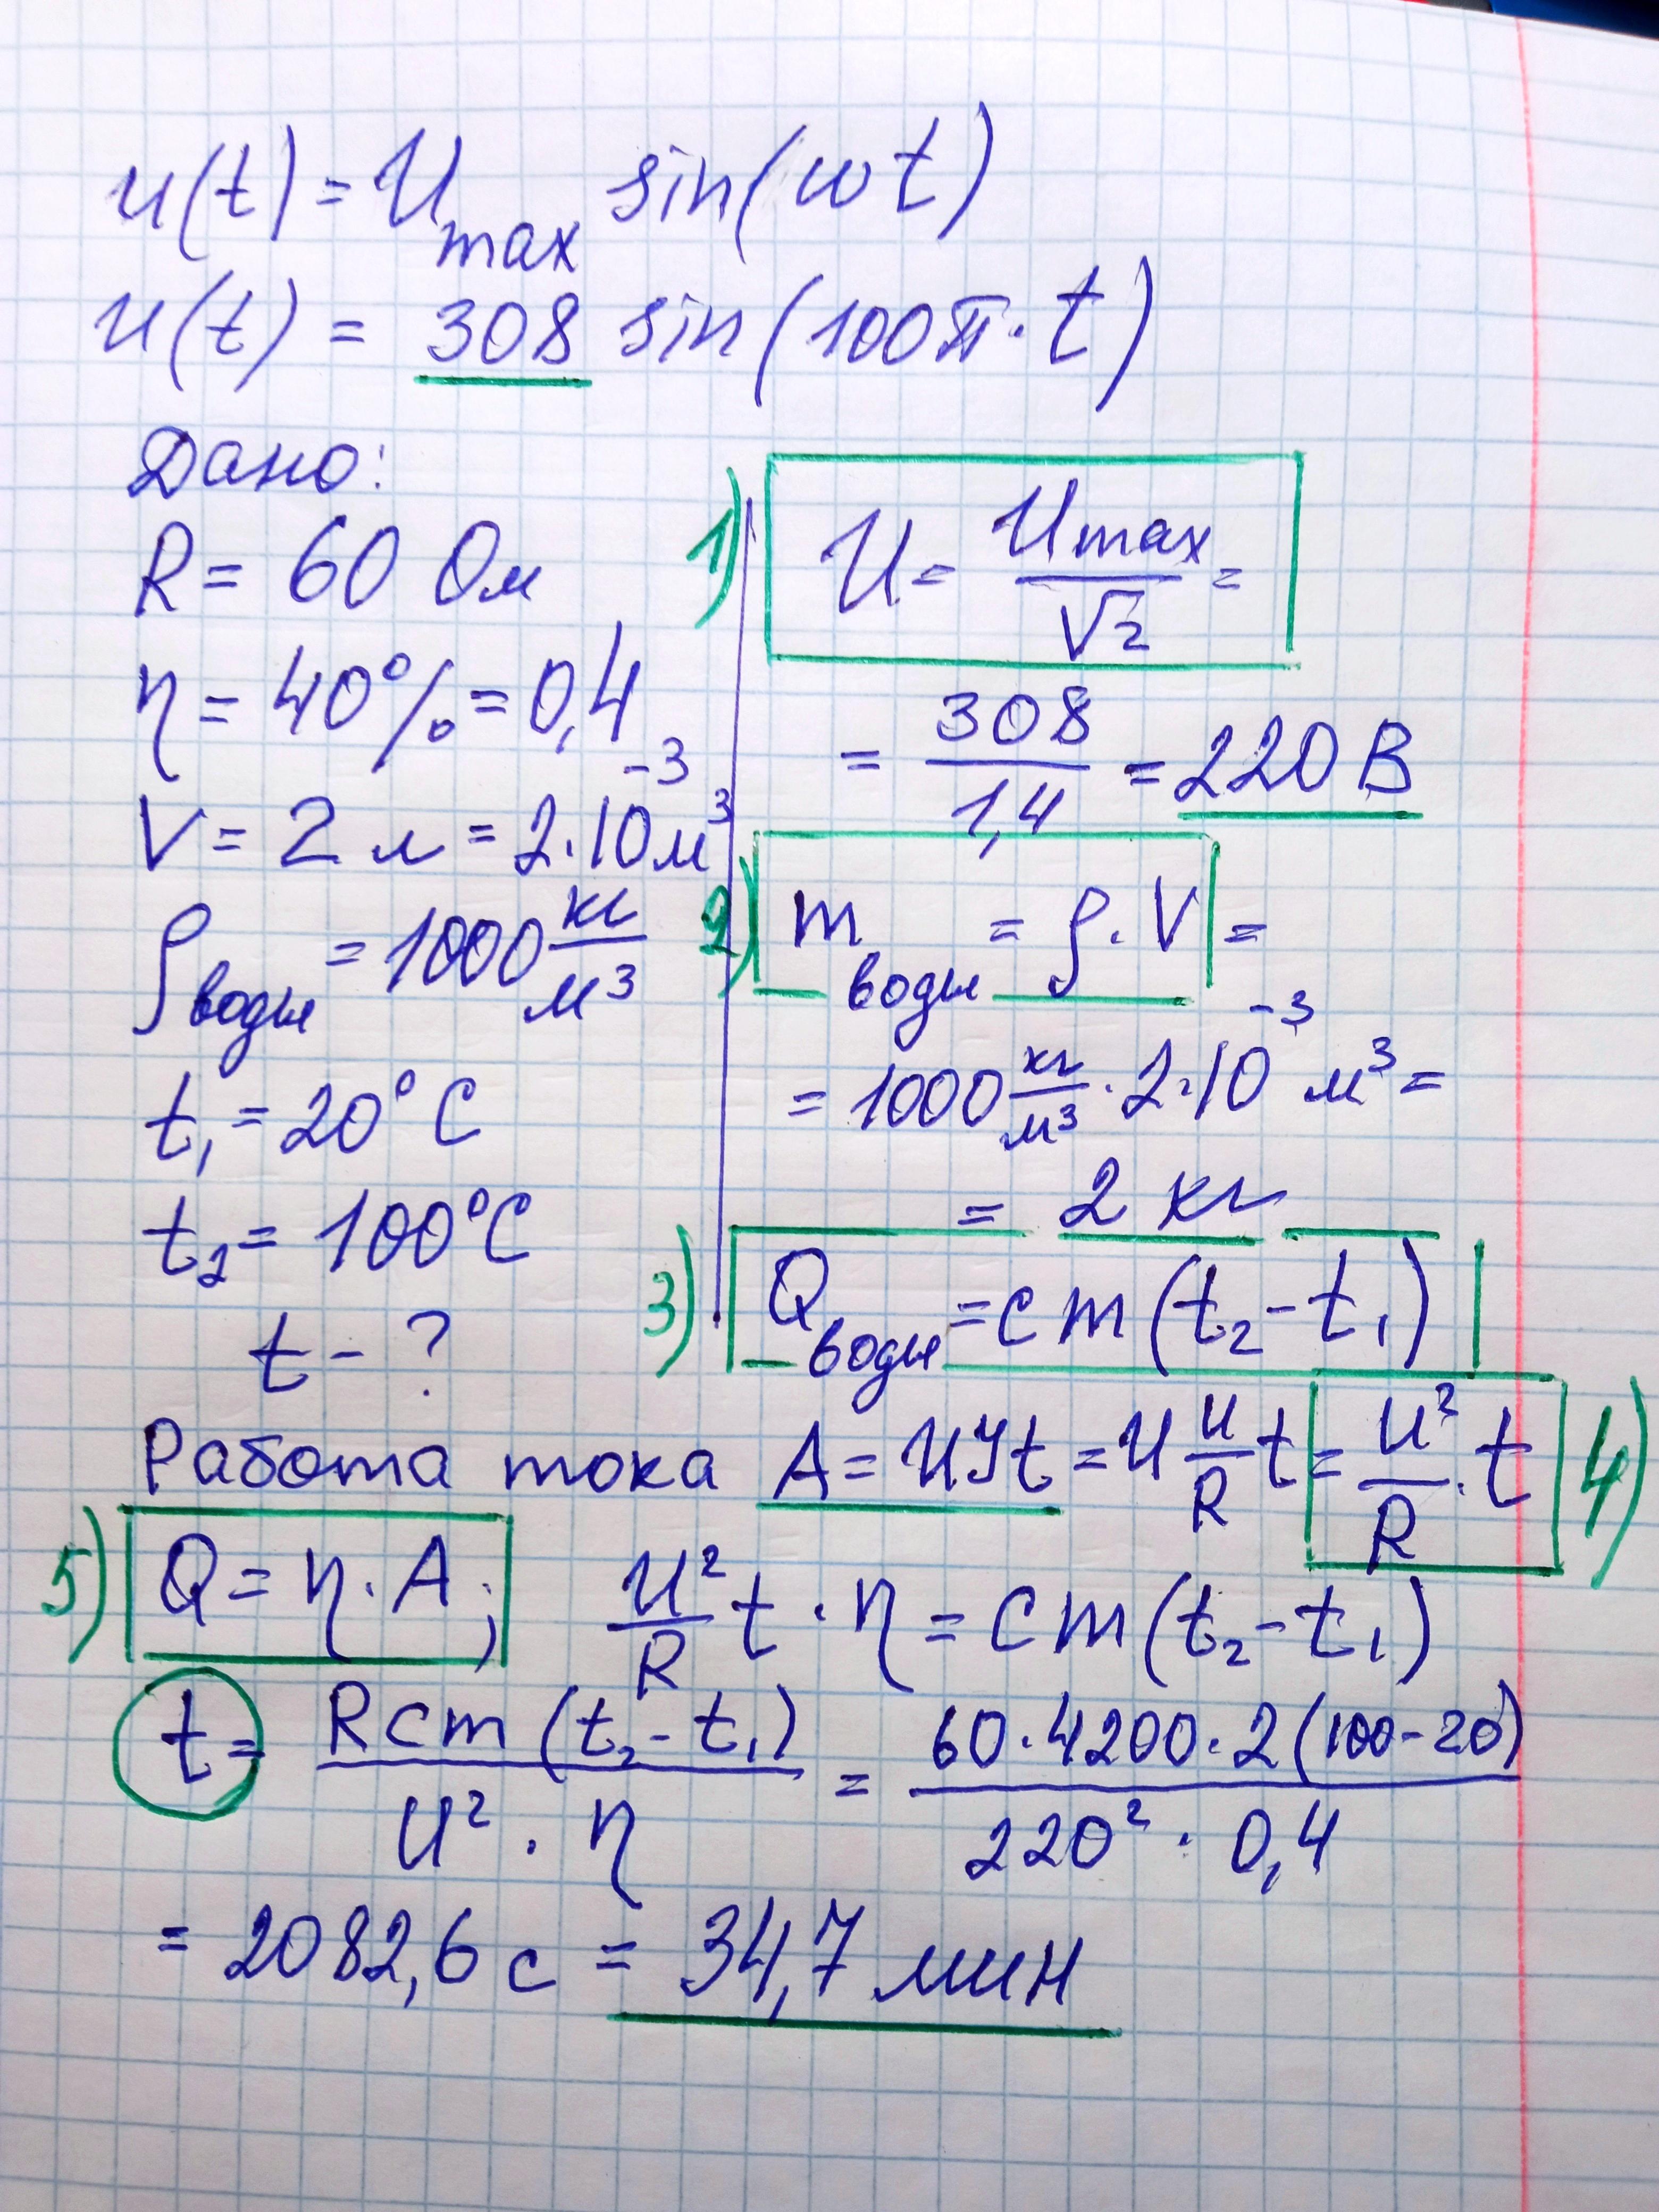 u(t) = U max sin(ωt)
u(t) = 308 sin(100π·t)
Дано:
R = 60 Ом
η = 40% = 0,4
V = 2 л = 2·10⁻³ м³
ρ воды = 1000 кг/м³
t₁ = 20°C
t₂ = 100°C
t - ?
1) U = Umax/√2 =
= 308/1,4 = 220 В
2) m воды = ρ·V =
= 1000 кг/м³ · 2·10⁻³ м³ =
= 2 кг
3) Q воды = cm(t₂ - t₁)
Работа тока A = UIt = U U/R t = U²/R · t 4)
5) Q = η·A; U²/R t · η = cm(t₂ - t₁)
t = Rcm(t₂ - t₁)/U² · η = 60·4200·2(100-20)/220² · 0,4
= 2082,6 с = 34,7 мин